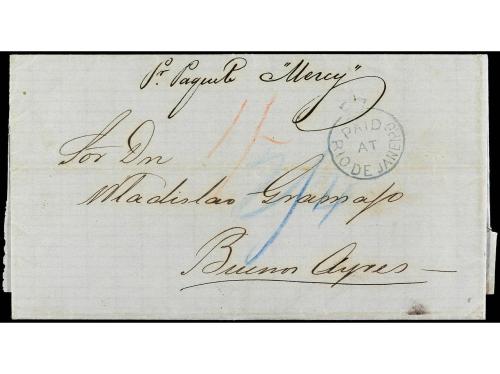 Pr. Paquete "Mersey"
PAID
AT
RIO DE JANEIRO
1/-
Sor Dn
Wladislao Gramajo
Buenos Ayres